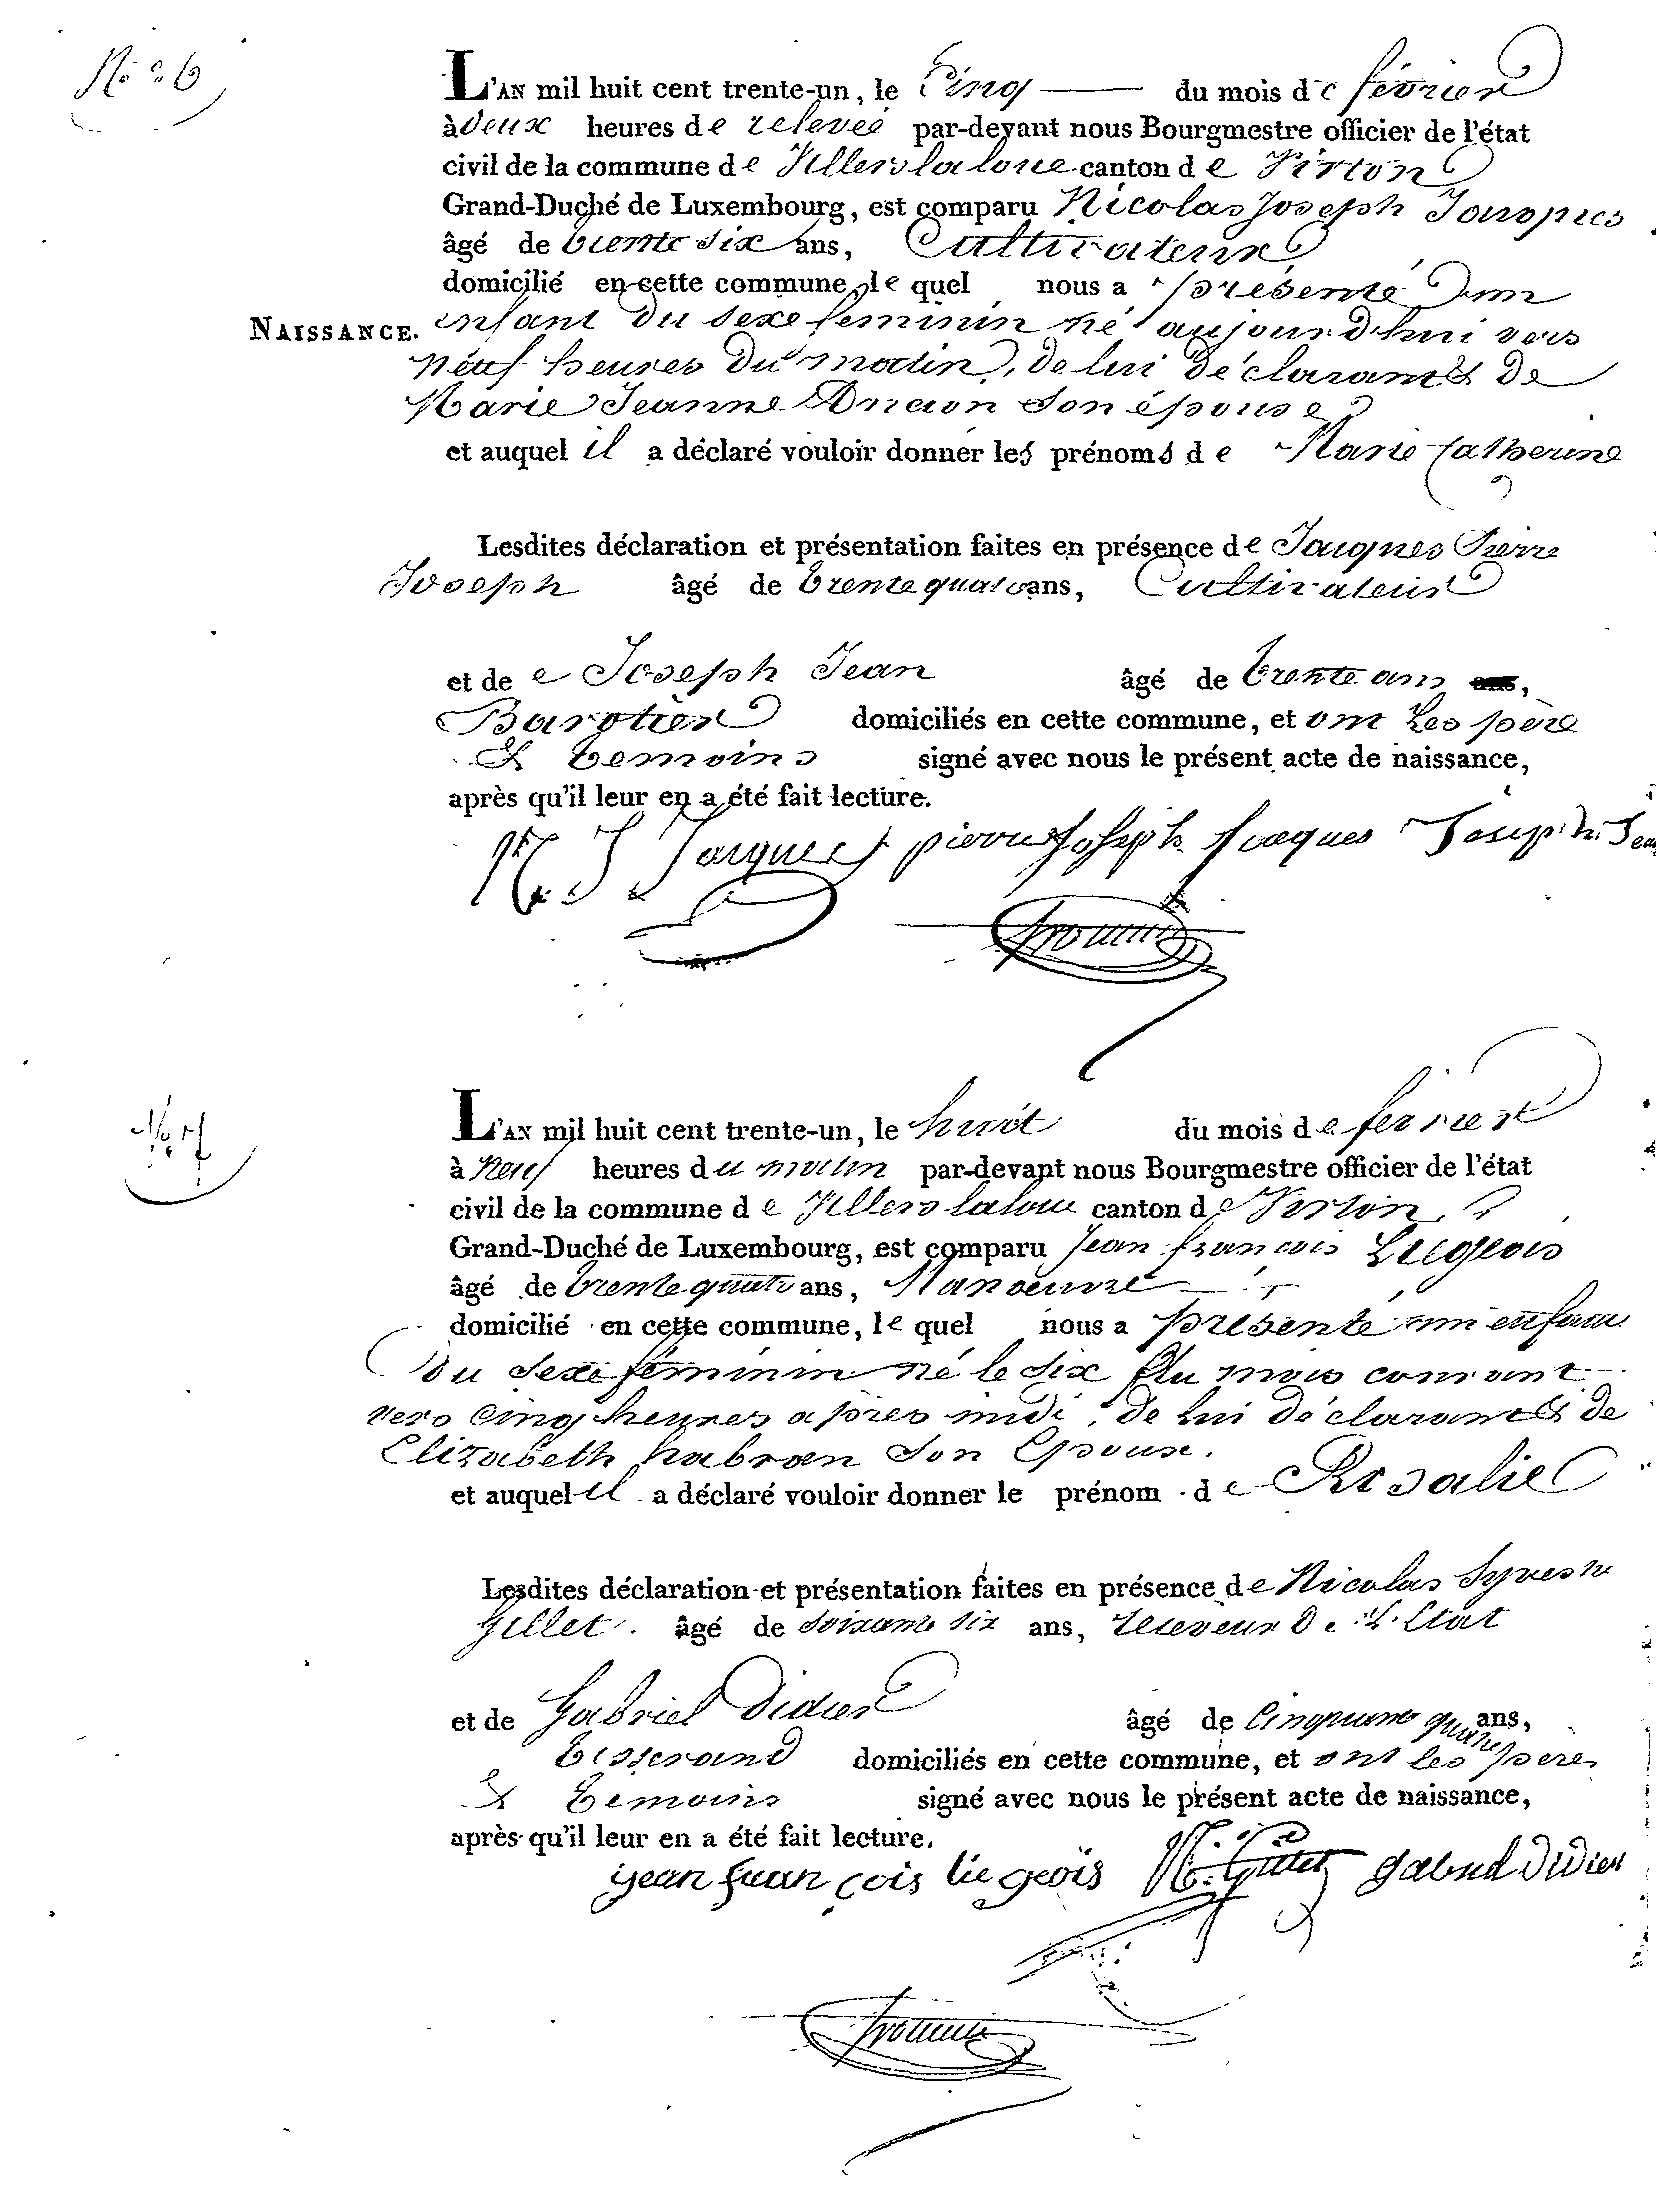 No. 6
L'AN mil huit cent trente-un, le Cinq du mois de février
à deux heures de relevée par-devant nous Bourgmestre officier de l'état
civil de la commune de Villers la loue canton de Virton
Grand-Duché de Luxembourg, est comparu Nicolas Joseph Jacques
âgé de trente six ans, Cultivateur
domicilié en cette commune, le quel nous a présenté un
NAISSANCE. enfant du sexe feminin né aujourd'hui vers
neuf heures du matin, de lui déclarant & de
Marie Jeanne Ancion son épouse
et auquel il a déclaré vouloir donner les prénoms de Marie Catherine
Lesdites déclaration et présentation faites en présence de Jacques Pierre
Joseph âgé de trente quatre ans, Cultivateur
et de e Joseph Jean âgé de trente ans ans,
domiciliés en cette commune, et ont les père
& temoins signé avec nous le présent acte de naissance,
après qu'il leur en a été fait lecture.
N. J Jacques pierre Joseph Jacques Joseph Jean
No. 7
L'AN mil huit cent trente-un, le huit du mois de fevrier
à neuf heures du matin par-devant nous Bourgmestre officier de l'état
civil de la commune de Villers la loue canton de Virton
Grand-Duché de Luxembourg, est comparu Jean françois Liégeois
âgé de trente quatre ans, Manoeuvre
domicilié en cette commune, le quel nous a présenté un enfant
du sexe féminin né le six du mois courant
vers cinq heures après midi, de lui déclarant & de
Elizabeth habran son Epouse.
et auquel il a déclaré vouloir donner le prénom de Rosalie
Lesdites déclaration et présentation faites en présence de Nicolas Sylvestre
Gillet. âgé de soixante six ans, receveur de L'Etat
et de Gabriel Didier âgé de cinquante quatre ans,
tisserand domiciliés en cette commune, et ont les père
& temoins signé avec nous le présent acte de naissance,
après qu'il leur en a été fait lecture.
jean fran çois lie geois N. Gillet gabriel didier